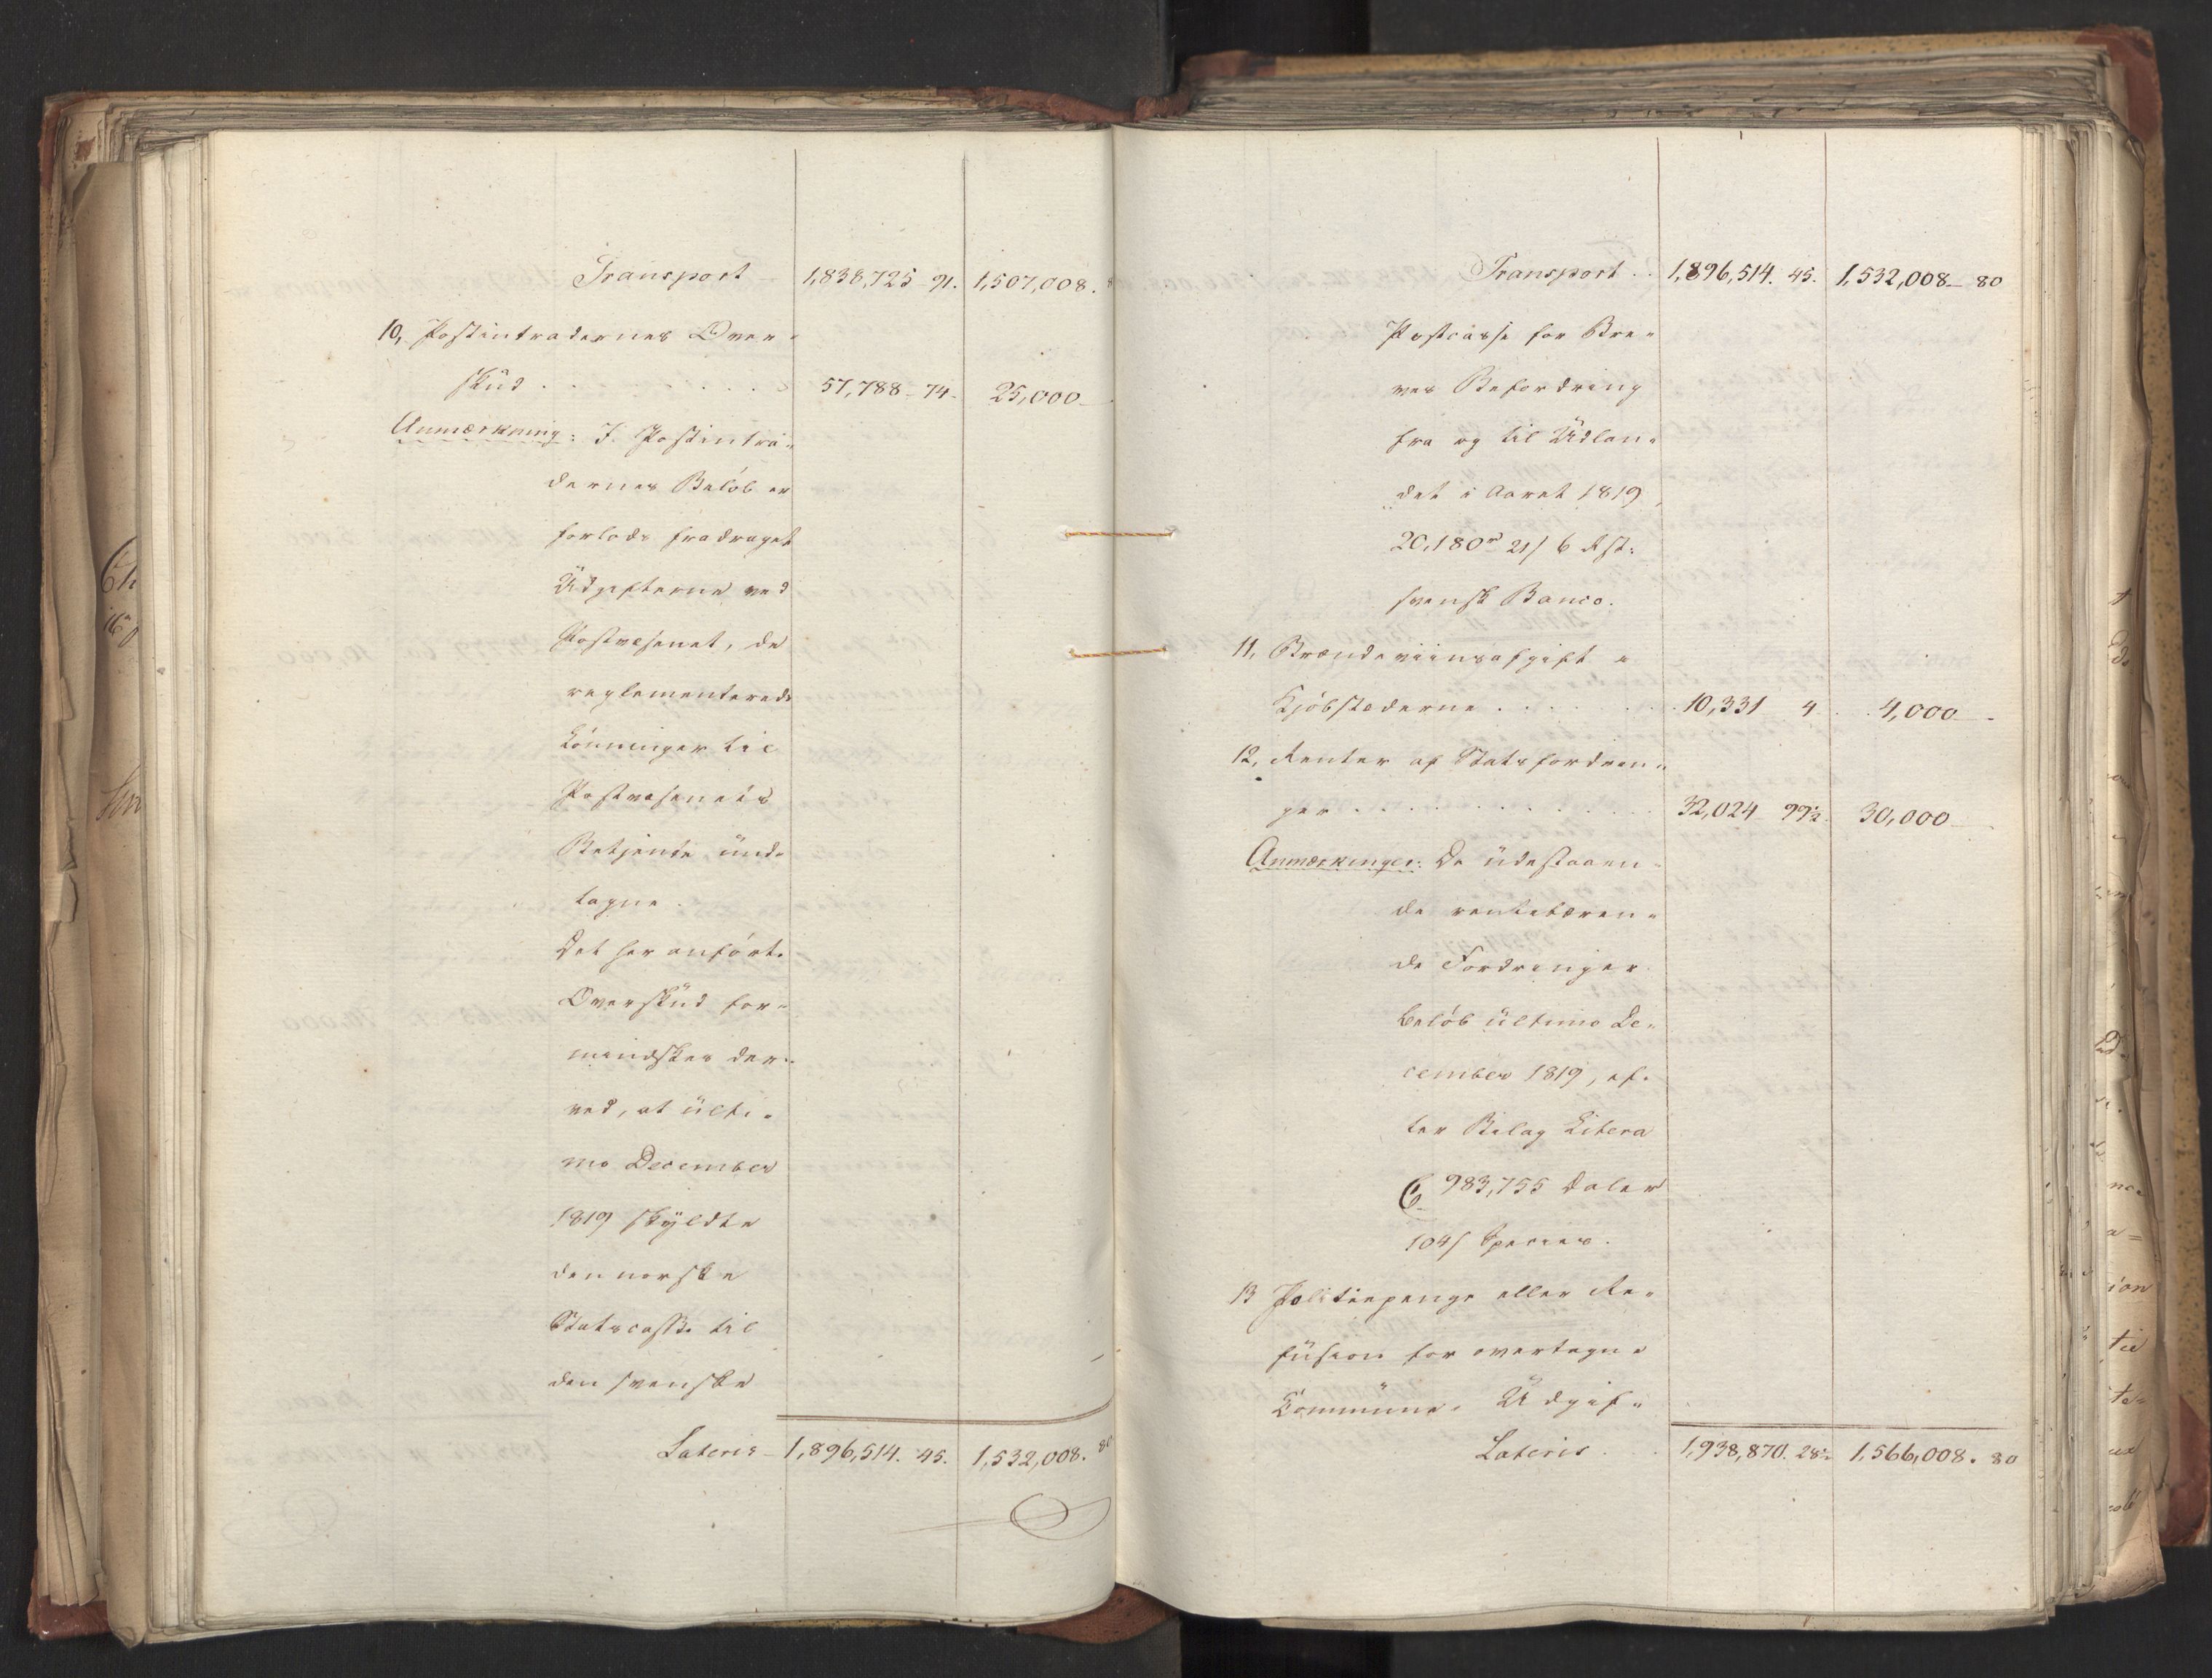 Transport - 1,838,725 - 91. 1,507,008.
10, Postintradernes Over-
skud . . . . . . . 57,788 - 74. 25,000 -
Anmærkning: I Postintra-
dernes Beløb er
forlods fradraget
Udgifterne ved
Postvæsenet, de
reglementerede
Lønninger til
Postvæsenets
Betjente, und-
tagne.
Det her anførte
Overskud for-
mindskes der-
ved, at ulti-
mo December
1819 skyldte
den norske
Statscasse til
den svenske
Lateris - 1,896,514. 45. 1,532,008. 80
Transport . . 1,896,514. 45. 1,532,008 - 80
Postcasse for Bre-
ves Befordring
fra og til Udlan-
det i Aaret 1819
20,180 rd 21/ 6 Rst:
svensk Banco.
11, Brændeviinsafgift i
Kjøbstæderne . . . . . . 10,331 4 . . 4,000 -
12, Renter af Statsfordrin-
ger . . . . . . . . . . 32,024 99½. 30,000 -
Anmærkninger: De udestaaen-
de rentebæren-
de Fordringer
beløb ultimo De-
cember 1819, ef-
ter Bilag Litera
C 983,755 Daler
104/ Species.
13 Politiepenge eller Re-
fusion for overtagne
Commune- Udgif-
Lateris . . 1,938,870. 28½ 1,566,008. 80